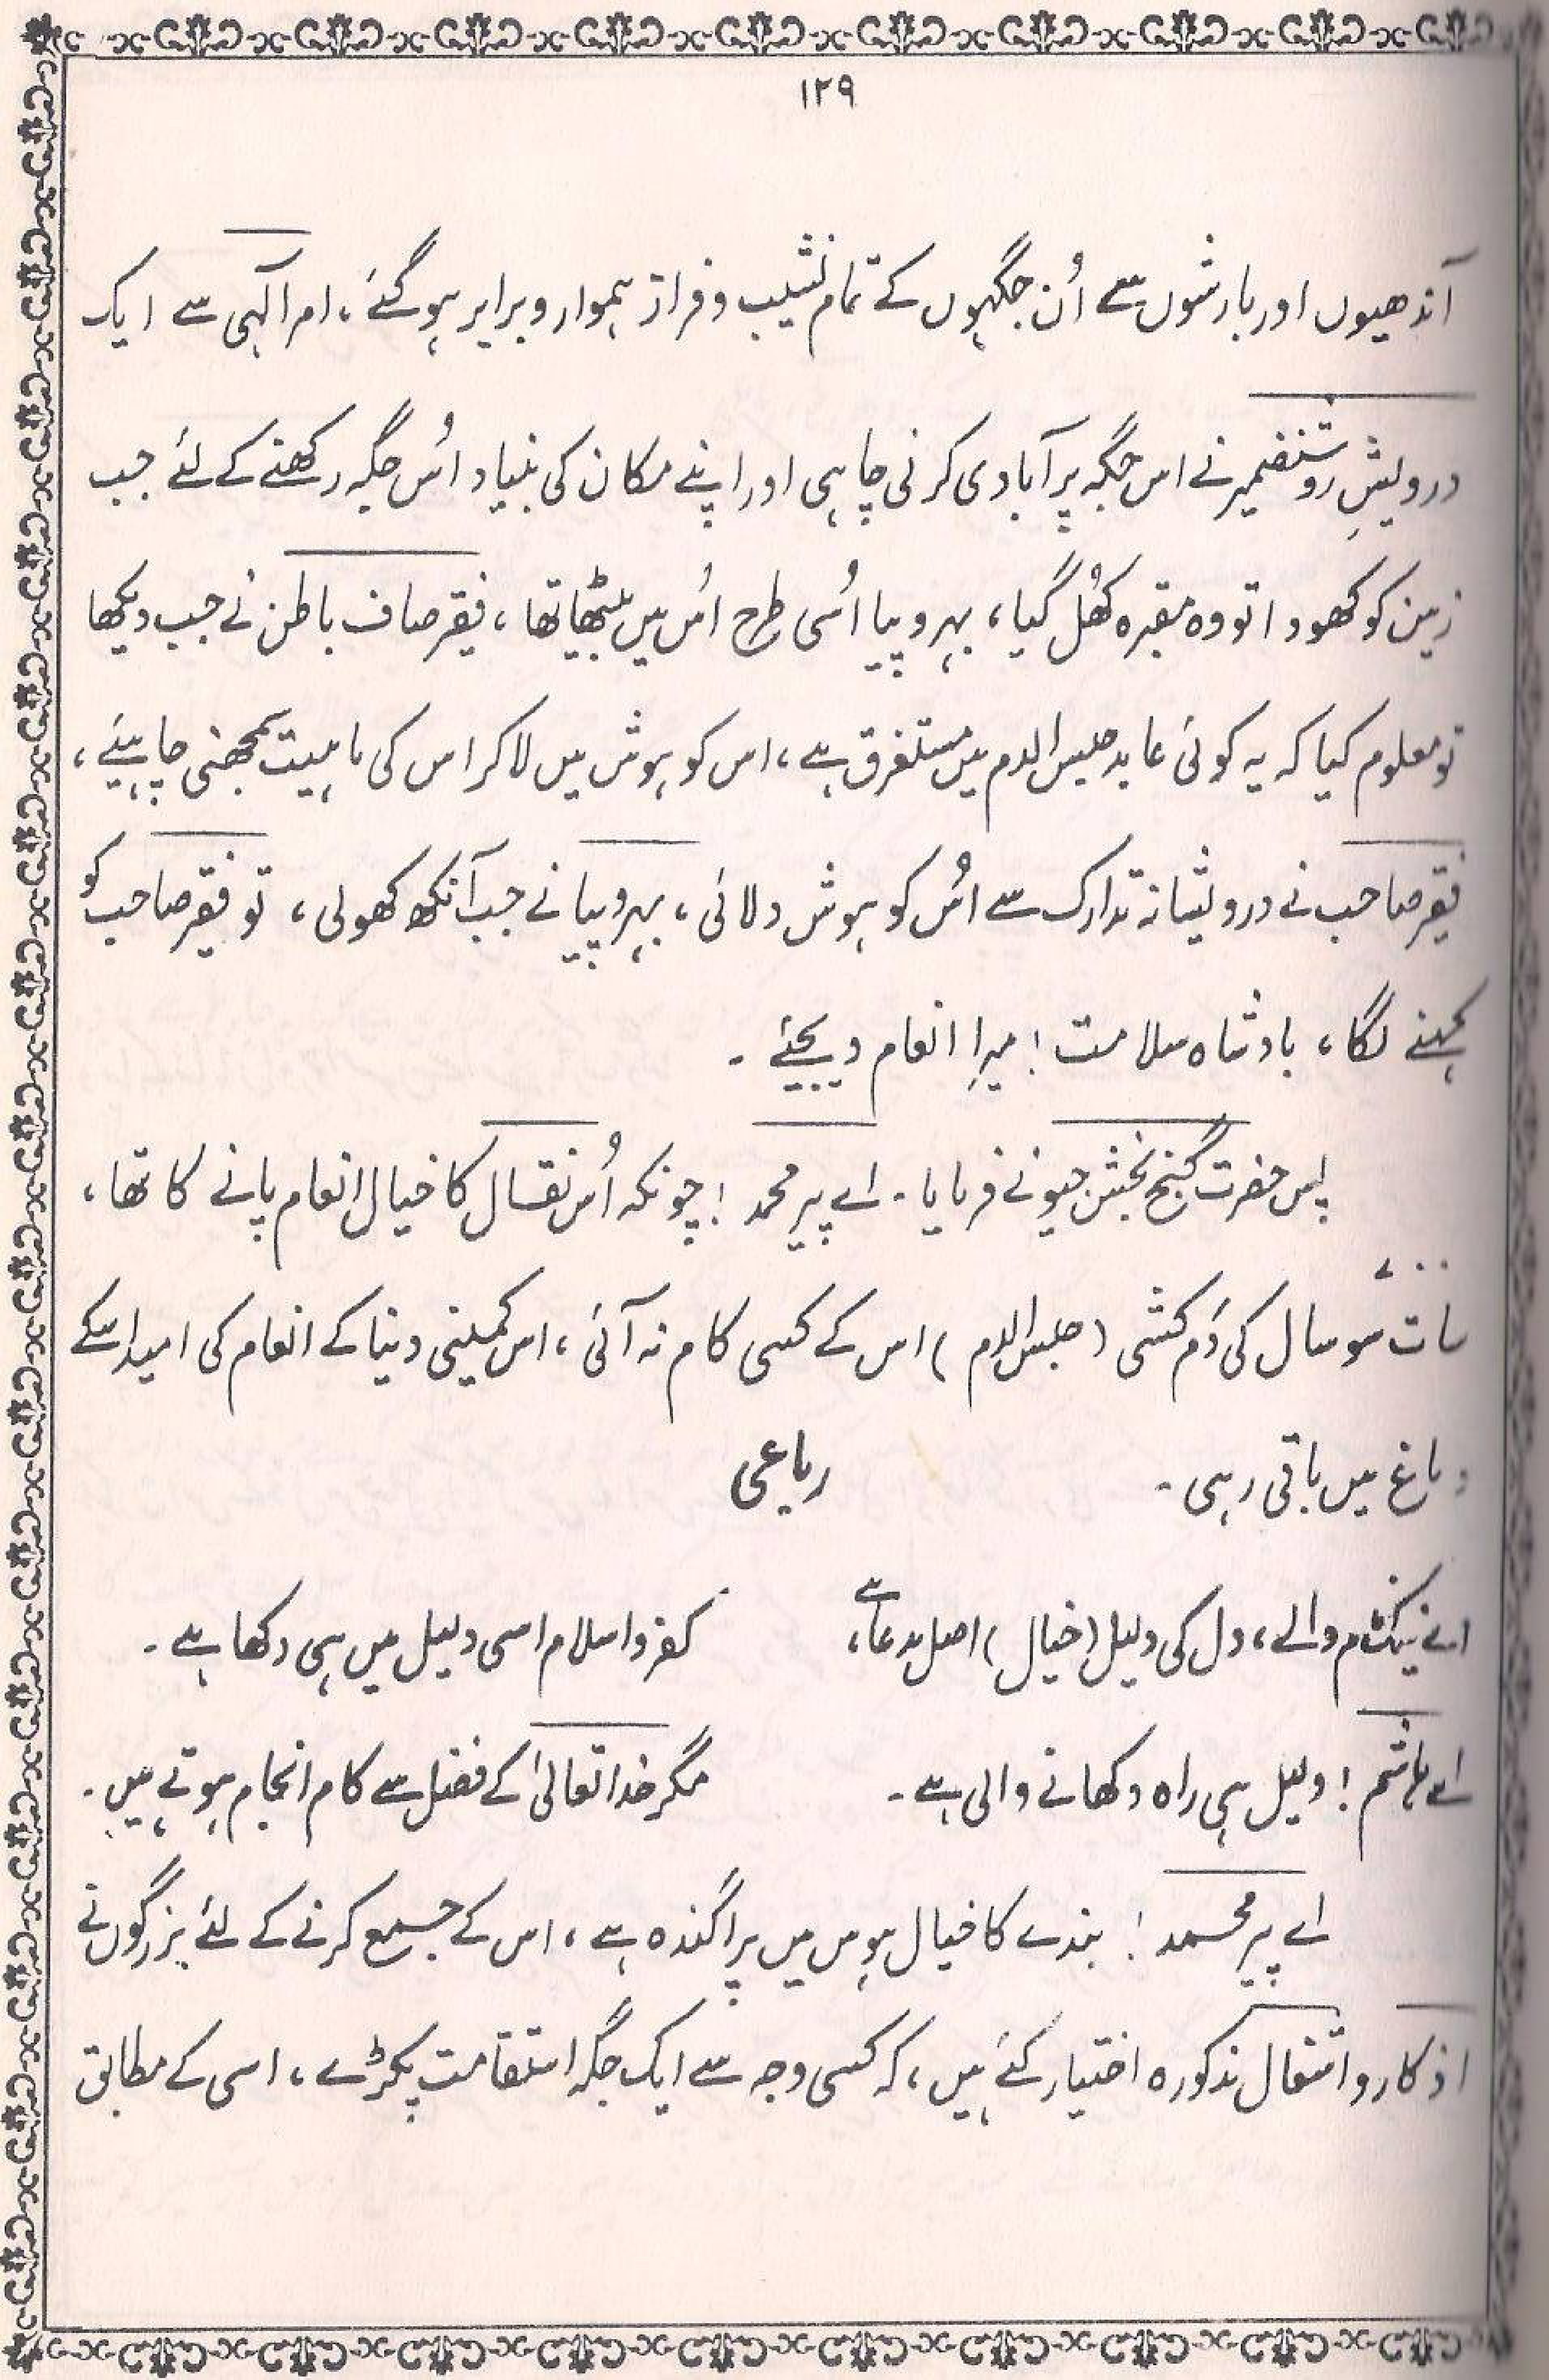 ۱۲۹
آندھیوں اور بارشوں سے اُن جگہوں کے تمام نشیب و فراز ہموار و برابر ہو گئے، امر الٰہی سے ایک
درویشِ روشنضمیر نے اس جگہ پر آبادی کرنی چاہی اور اپنے مکان کی بنیاد اُس جگہ رکھنے کے لئے جب
زمین کو کھودا تو وہ مقبرہ کُھل گیا، بہروپیا اُسی طرح اُس میں بیٹھا تھا، فقیر صاف باطن نے جب دیکھا
تو معلوم کیا کہ یہ کوئی عابد حبس الدم میں مستغرق ہے، اس کو ہوش میں لا کر اس کی ماہیت سمجھنی چاہیئے،
فقیر صاحب نے درویشانہ تدارک سے اُس کو ہوش دلائی، بہروپیا نے جب آنکھ کھولی، تو فقیر صاحب کو
کہنے لگا، بادشاہ سلامت! میرا انعام دیجئے۔
پس حضرت گنج بخش جیو نے فرمایا۔ اے پیر محمد! چونکہ اُس نقال کا خیال انعام پانے کا تھا،
۷۰۰
سات سو سال کی دَم کشی (حبس الدم) اس کے کسی کام نہ آئی، اس کمینی دنیا کے انعام کی امید اسکے
دماغ میں باقی رہی۔ رباعی
اے نیک نام والے، دل کی دلیل (خیال) اصل مدعا ہے، کفر و اسلام اسی دلیل میں ہی رکھا ہے۔
اے ہاشم! دلیل ہی راہ دکھانے والی ہے۔ مگر خدا تعالیٰ کے فضل سے کام انجام ہوتے ہیں۔
اے پیر محمد! بندے کا خیال ہوس میں پراگندہ ہے، اس کے جمع کرنے کے لئے بزرگوں نے
اذکار و اشغال مذکورہ اختیار کئے ہیں، کہ کسی وجہ سے ایک جگہ استقامت پکڑے، اسی کے مطابق